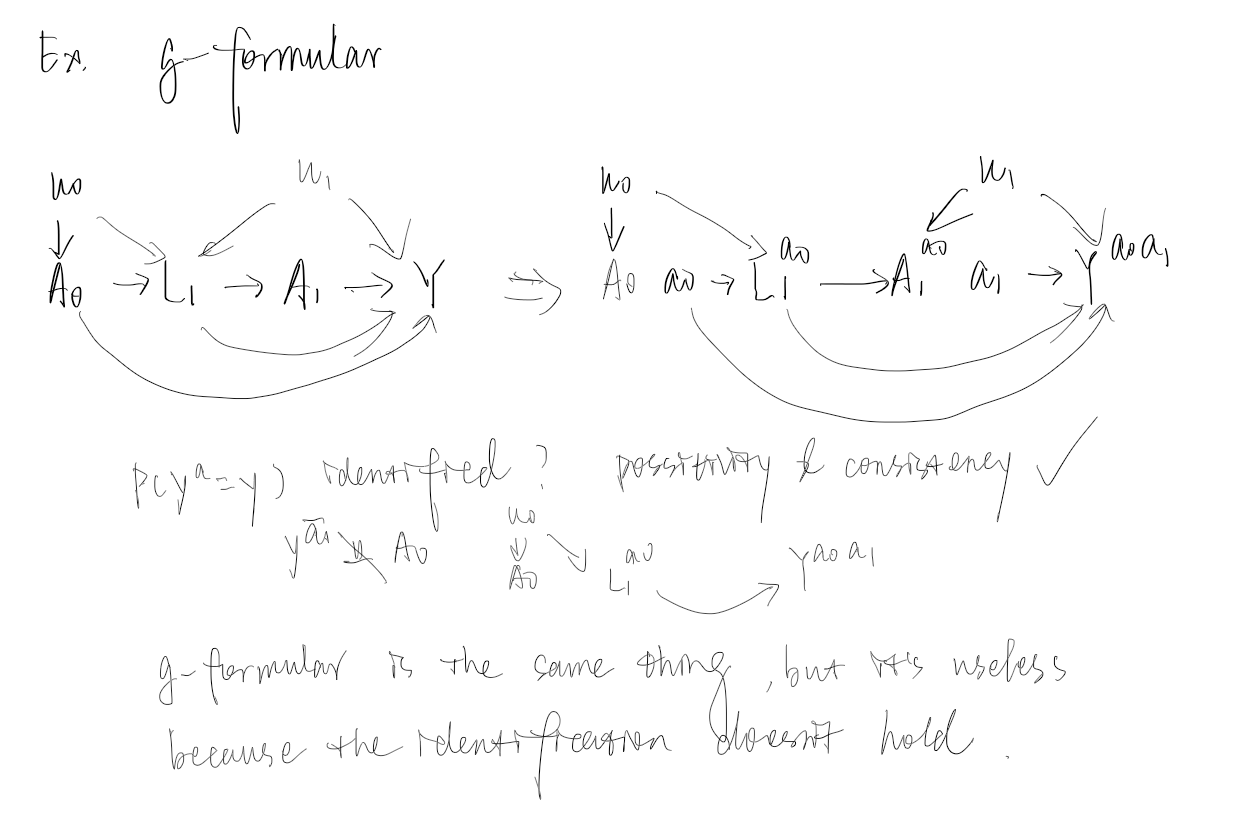 Ex. g-formular
u₀ u₁ u₀ u₁
A₀ → L₁ → A₁ → Y ⇒ A₀ a₀ → L₁^a₀ → A₁^a₀ a₁ → Y^a₀a₁
P(Y^a = y) identified? possitivity & consistency ✓
u₀
Y^ā₁ A₀ A₀ L₁^a₀ Y^a₀a₁
g-formular is the same thing, but it's useless
because the identification doesn't hold.